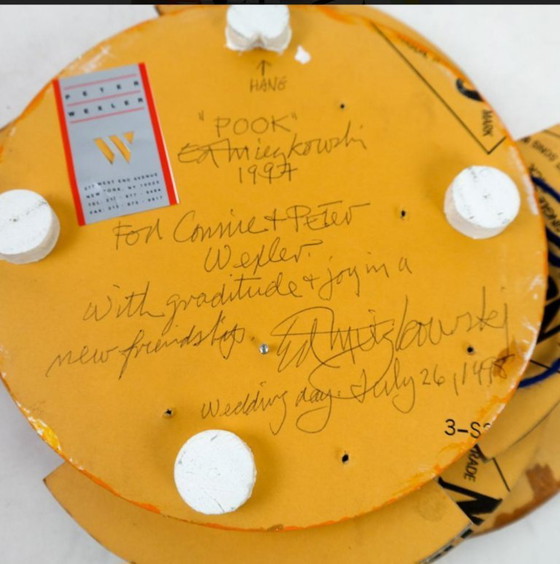 HANG
PETER
WEXLER
W
NEW YORK, N.Y.
"POOK"
Ed Mieczkowski
1997
For Connie & Peter
Wexler.
With graditude & joy in a
new friendship
Ed Mieczkowski
Wedding day. July 26, 1998
MARK
3-S
RADE